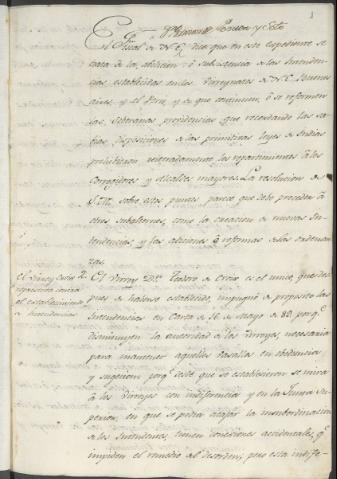 1
El Fiscal de N. E. dice que en este expediente se
trata de la abolicion ó subsistencia de las Intenden-
cias establecidas en los Virreynatos de N. E. Buenos
aires, y el Perú, y de que continuen, ó se reformen
las Soberanas providencias que recordando las sa-
bias disposiciones de las primitivas leyes de Indias
prohibieron reiteradamente los repartimientos á los
Corregidores y Alcaldes mayores. La resolucion de
S. M. sobre estos puntos parece que debe preceder á
otros subalternos, como la creacion de nuevas In-
tendencias, y las adiciones ó reformas de las ordenan-
zas.
El Virrey Croix
representa contra
el establecimiento
de Intendencias
El Virrey Dn. Teodoro de Croix es el unico, que des-
pues de haberse establecido, impugnó de proposito las
Intendencias en Carta de 16 de Mayo de 89. porqe.
disminuyen la autoridad de los Virreyes, necesaria
para mantener aquellos Vasallos en obediencia
y sugecion: porqe. desde que se establecieron se mira
á los Virreyes con indiferencia y en la Junta Su-
perior, en que se podia atajar la insubordinacion
de los Intendentes, tienen conexiones accidentales, qe.
impiden el remedio al desorden; pues esta indife-